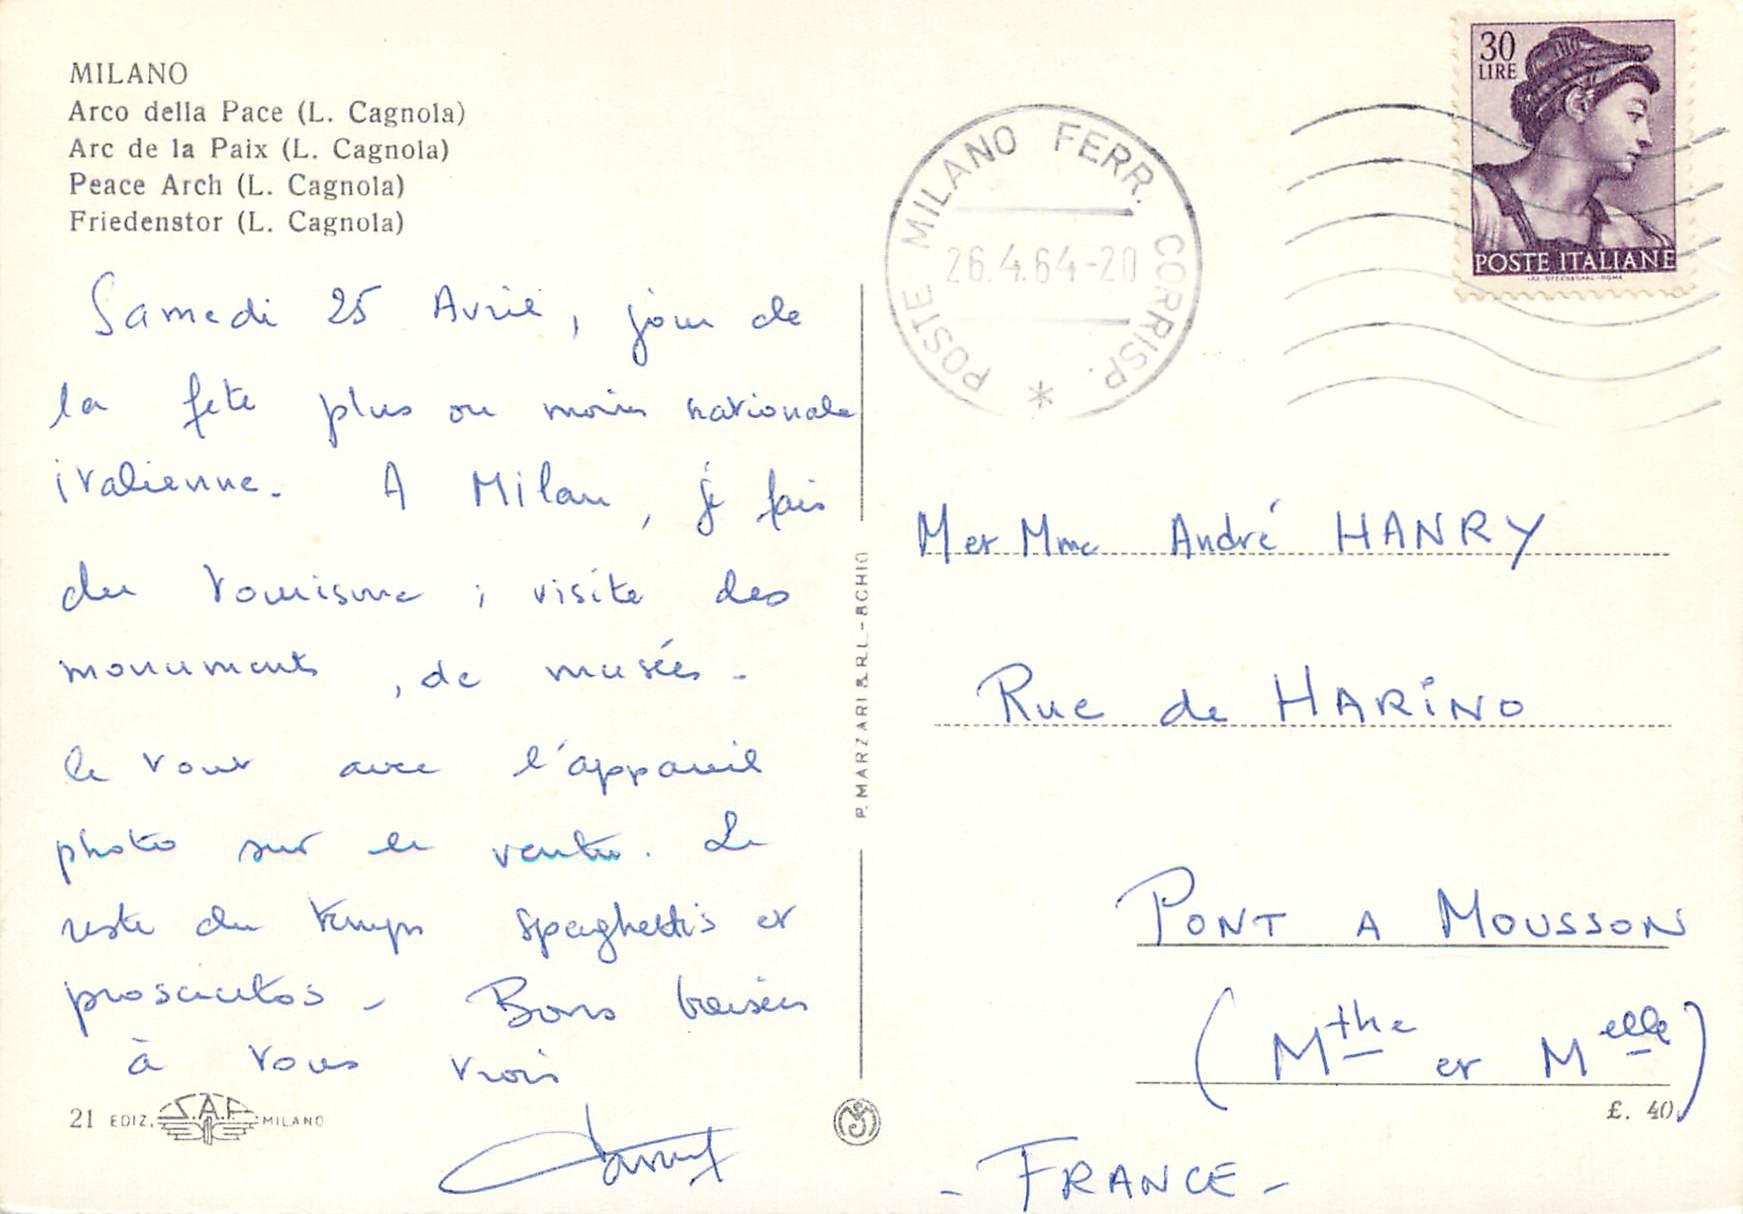 MILANO
Arco della Pace (L. Cagnola)
Arc de la Paix (L. Cagnola)
Peace Arch (L. Cagnola)
Friedenstor (L. Cagnola)
Samedi 25 Avril, jour de
la fête plus ou moins nationale
italienne. A Milan, je fais
du tourisme ; visite des
monuments, de musées -
le tout avec l'appareil
photo sur le ventre. Le
reste du temps spaghettis et
prosciuttos - Bons baisers
à vous trois
21 EDIZ. S.A.F. MILANO
P. MARZARI S.R.L. - SCHIO
POSTE MILANO FERR. CORRISP.
26.4.64-20
30
LIRE
POSTE ITALIANE
M et Mme André HANRY
Rue de HARINO
PONT A MOUSSON
(Mthe et Melle)
£. 40
- FRANCE -